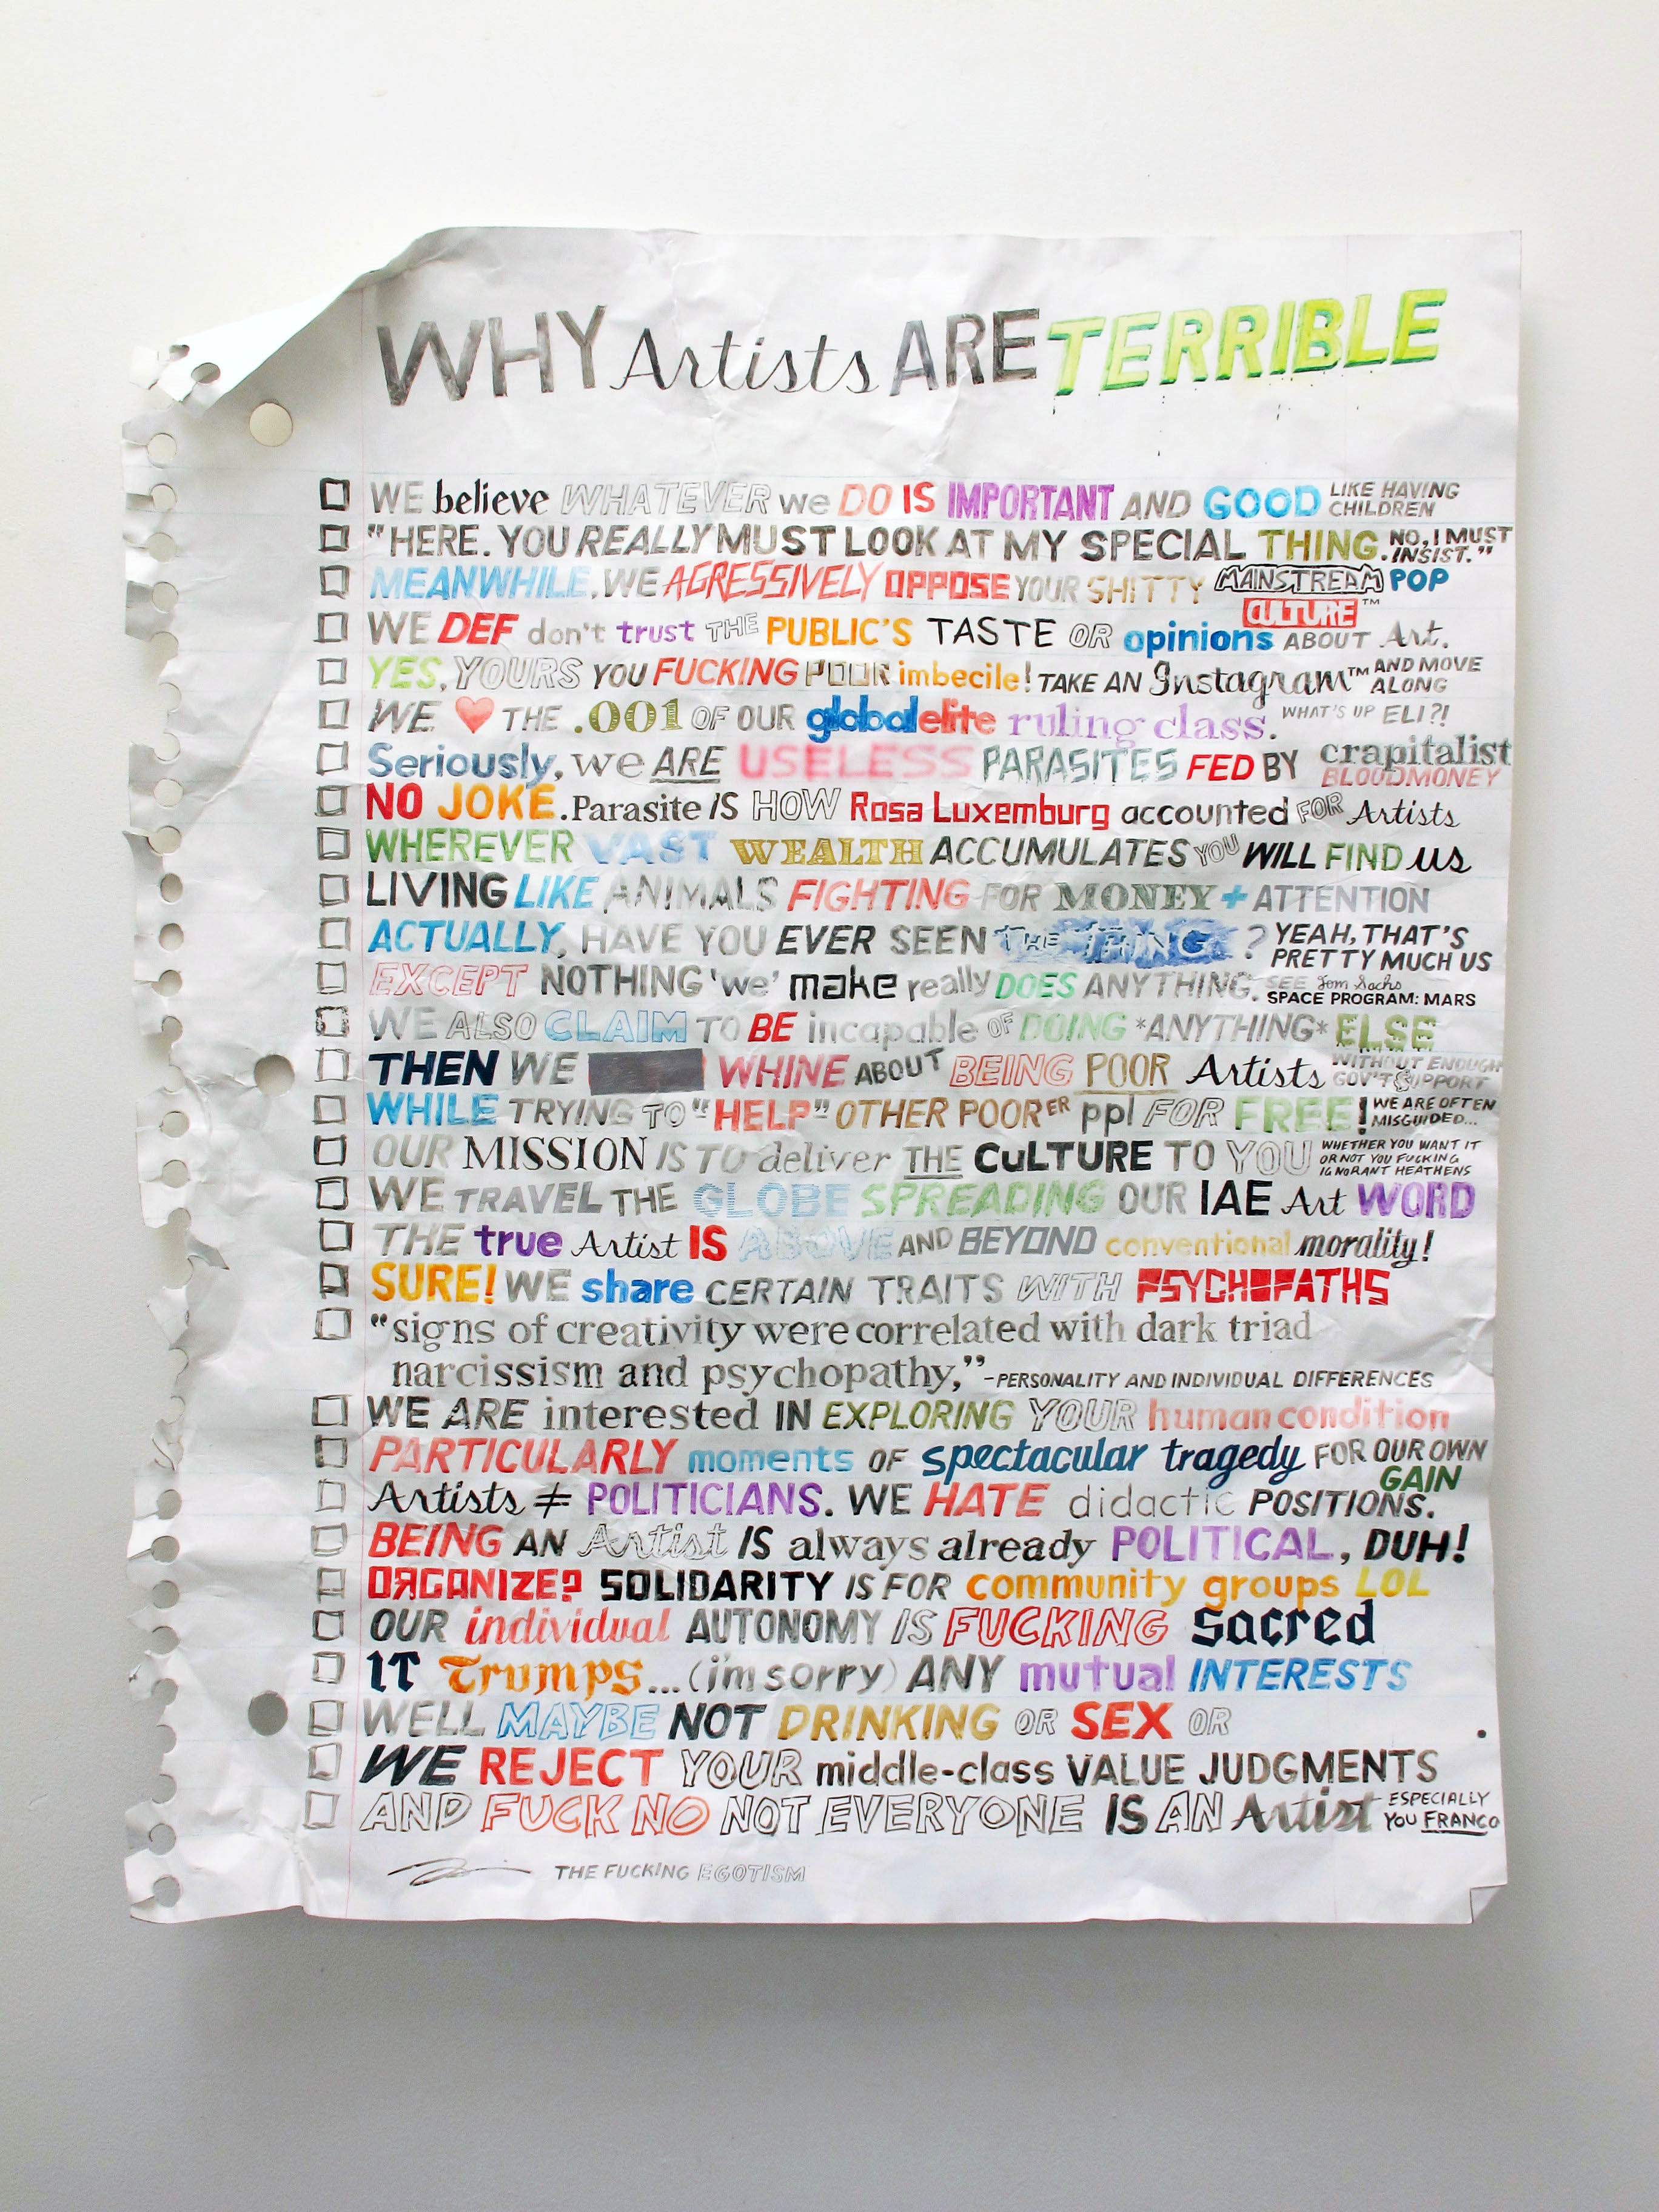 WHY Artists ARE TERRIBLE
WE believe WHATEVER we DO IS IMPORTANT AND GOOD LIKE HAVING CHILDREN
"HERE. YOU REALLY MUST LOOK AT MY SPECIAL THING. NO, I MUST INSIST."
MEANWHILE, WE AGRESSIVELY OPPOSE YOUR SHITTY MAINSTREAM POP CULTURE™
WE DEF don't trust THE PUBLIC'S TASTE OR opinions ABOUT Art.
YES, YOURS YOU FUCKING POOR imbecile! TAKE AN Instagram™ AND MOVE ALONG
WE ♥ THE .001 OF OUR global elite ruling class. WHAT'S UP ELI?!
Seriously, we ARE USELESS PARASITES FED BY crapitalist BLOODMONEY
NO JOKE. Parasite IS HOW Rosa Luxemburg accounted FOR Artists
WHEREVER VAST WEALTH ACCUMULATES YOU WILL FIND us
LIVING LIKE ANIMALS FIGHTING FOR MONEY + ATTENTION
ACTUALLY, HAVE YOU EVER SEEN THE THING? YEAH, THAT'S PRETTY MUCH US
EXCEPT NOTHING 'we' make really DOES ANYTHING. SEE Tom Sachs SPACE PROGRAM: MARS
WE ALSO CLAIM TO BE incapable OF DOING *ANYTHING* ELSE
THEN WE WHINE ABOUT BEING POOR Artists WITHOUT ENOUGH GOV'T SUPPORT
WHILE TRYING TO "HELP" OTHER POORER ppl FOR FREE! WE ARE OFTEN MISGUIDED...
OUR MISSION IS TO deliver THE CuLTURE TO YOU WHETHER YOU WANT IT OR NOT YOU FUCKING IGNORANT HEATHENS
WE TRAVEL THE GLOBE SPREADING OUR IAE Art WORD
THE true Artist IS ABOVE AND BEYOND conventional morality!
SURE! WE share CERTAIN TRAITS WITH PSYCHOPATHS
"signs of creativity were correlated with dark triad
narcissism and psychopathy," -PERSONALITY AND INDIVIDUAL DIFFERENCES
WE ARE interested IN EXPLORING YOUR human condition
PARTICULARLY moments OF spectacular tragedy FOR OUR OWN GAIN
Artists ≠ POLITICIANS. WE HATE didactic POSITIONS.
BEING AN Artist IS always already POLITICAL, DUH!
ORGANIZE? SOLIDARITY IS FOR community groups LOL
OUR individual AUTONOMY IS FUCKING sacred
IT Trumps... (i'm sorry) ANY mutual INTERESTS
WELL MAYBE NOT DRINKING OR SEX OR
WE REJECT YOUR middle-class VALUE JUDGMENTS
AND FUCK NO NOT EVERYONE IS AN Artist ESPECIALLY YOU FRANCO
THE FUCKING EGOTISM